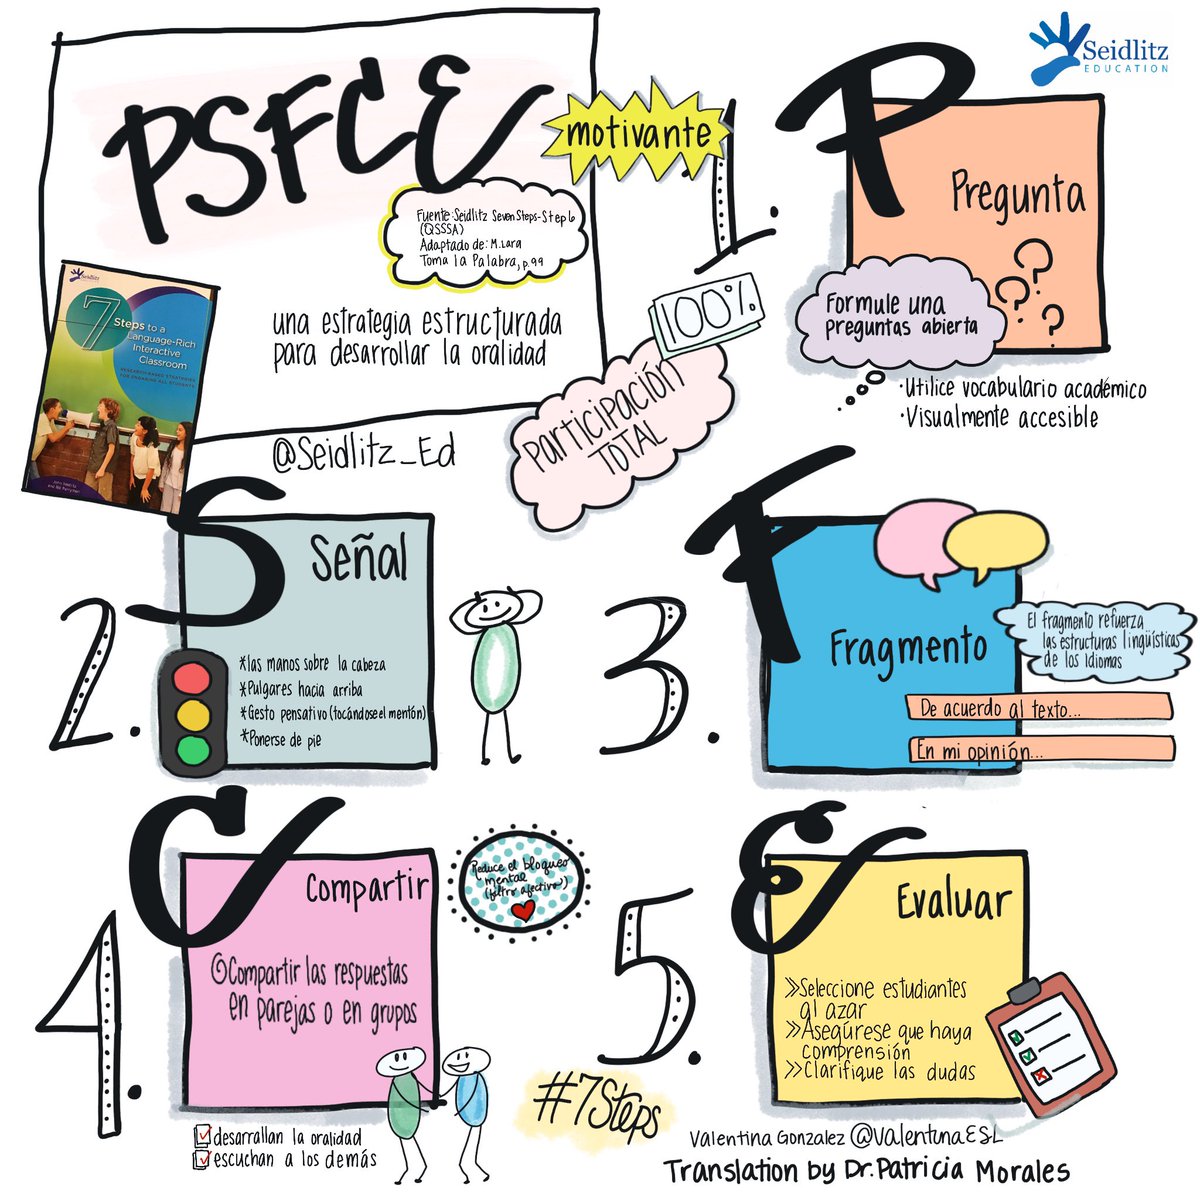 PSFCE
motivante
Fuente: Seidlitz Seven Steps-Step 6
(QSSSA)
Adaptado de: M. Lara
Toma la Palabra, p. 99
una estrategia estructurada
para desarrollar la oralidad
@Seidlitz_Ed
100%
Participación
TOTAL
Seidlitz
7
Steps to a
Language-Rich
Interactive
Classroom
RESEARCH-BASED STRATEGIES
FOR ENGAGING ALL STUDENTS
John Seidlitz
and Bill Perryman
Seidlitz
EDUCATION
1.
P
Pregunta
???
Formule una
preguntas abierta
·Utilice vocabulario académico
·Visualmente accesible
2.
S
Señal
*las manos sobre la cabeza
*Pulgares hacia arriba
*Gesto pensativo (tocándose el mentón)
*Ponerse de pie
3.
F
Fragmento
El fragmento refuerza
las estructuras lingüísticas
de los Idiomas
De acuerdo al texto...
En mi opinión...
4.
C
Compartir
Compartir las respuestas
en parejas o en grupos
Reduce el bloqueo
mental
(filtro afectivo)
desarrallan la oralidad
escuchan a los demás
5.
E
Evaluar
»Seleccione estudiantes
al azar
»Asegúrese que haya
comprensión
»Clarifique las dudas
#7Steps
Valentina Gonzalez @ValentinaESL
Translation by Dr. Patricia Morales